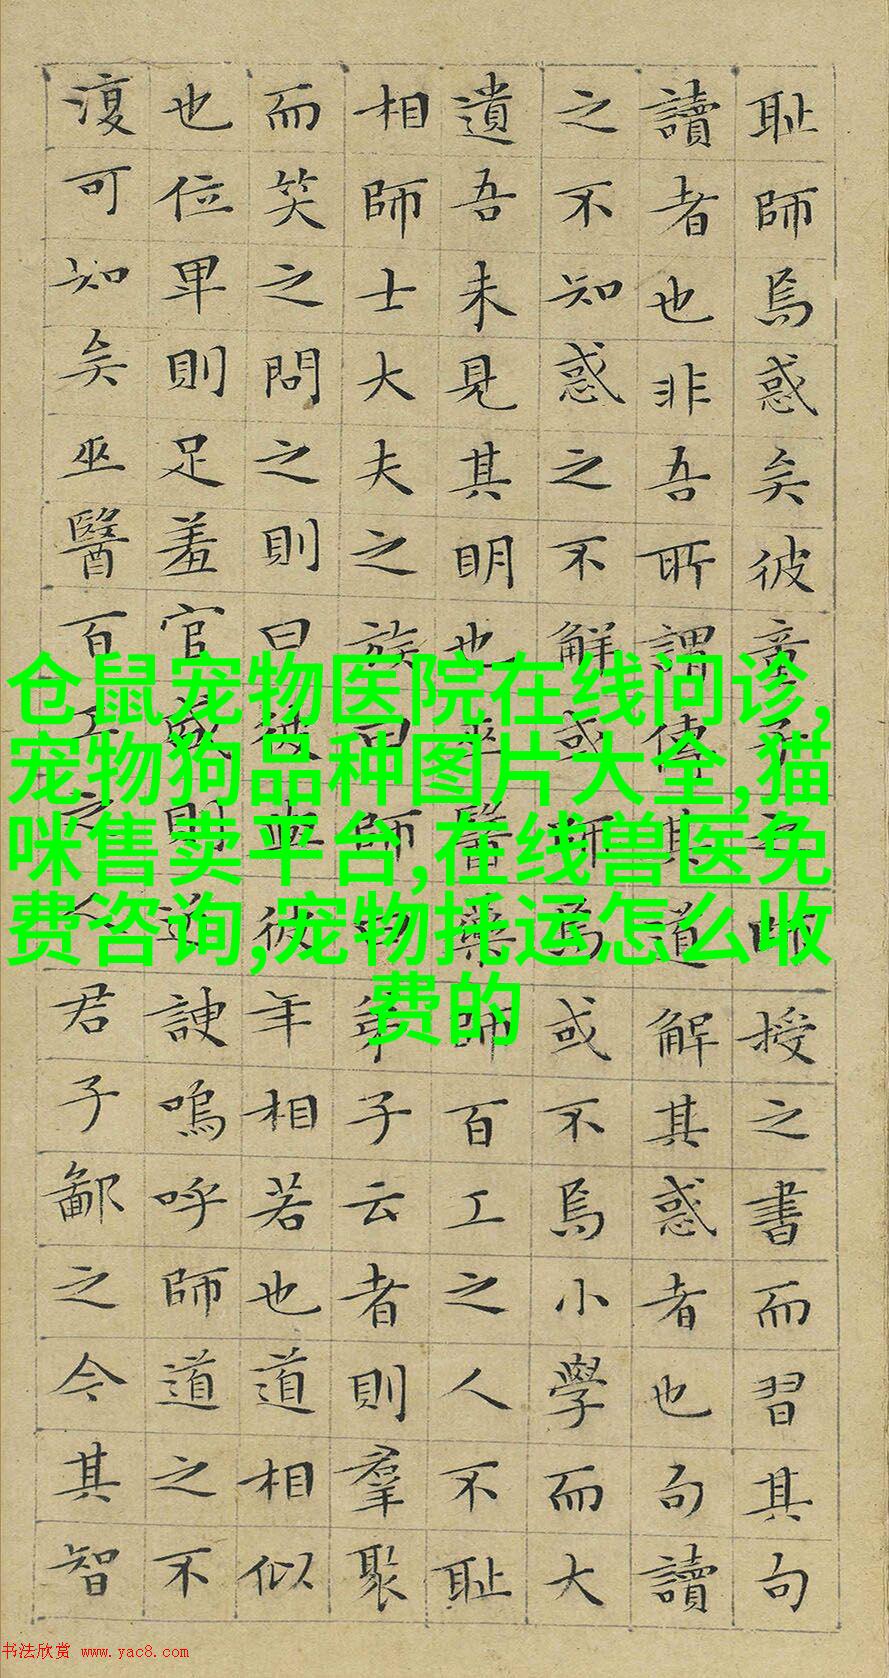 耻師焉惑矣彼童子之師授之書而習其句
讀者也非吾所謂傳其道解其惑者也句讀
之不知惑之不解或師焉或不焉小學而大
遺吾未見其明也巫醫藥師百工之人不耻
相師士大夫之族曰師曰弟子云者則羣聚
而笑之問之則曰彼與彼年相若也道相似
也位卑則足羞官盛則近諛嗚呼師道之不
復可知矣巫醫百工之人君子鄙之今其智
仓鼠宠物医院在线问诊,
宠物狗品种图片大全,猫
咪售卖平台,在线兽医免
费咨询,宠物托运怎么收
费的
书法欣赏 www.yac8.com